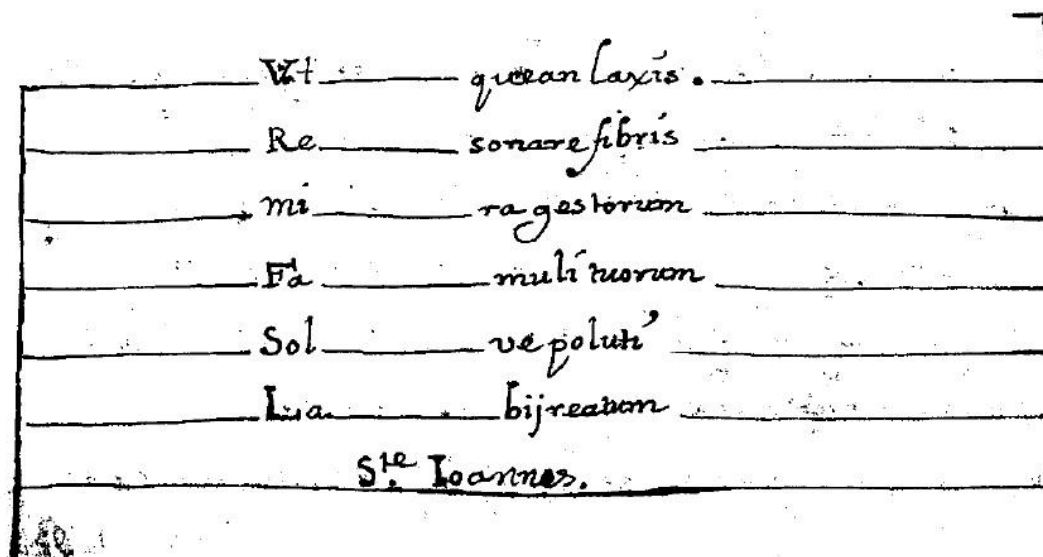 Vt quean laxis.
Re sonare fibris
mi ra gestorum
Fa muli tuorum
Sol ve poluti
La bij reatum
S.te Ioannes.